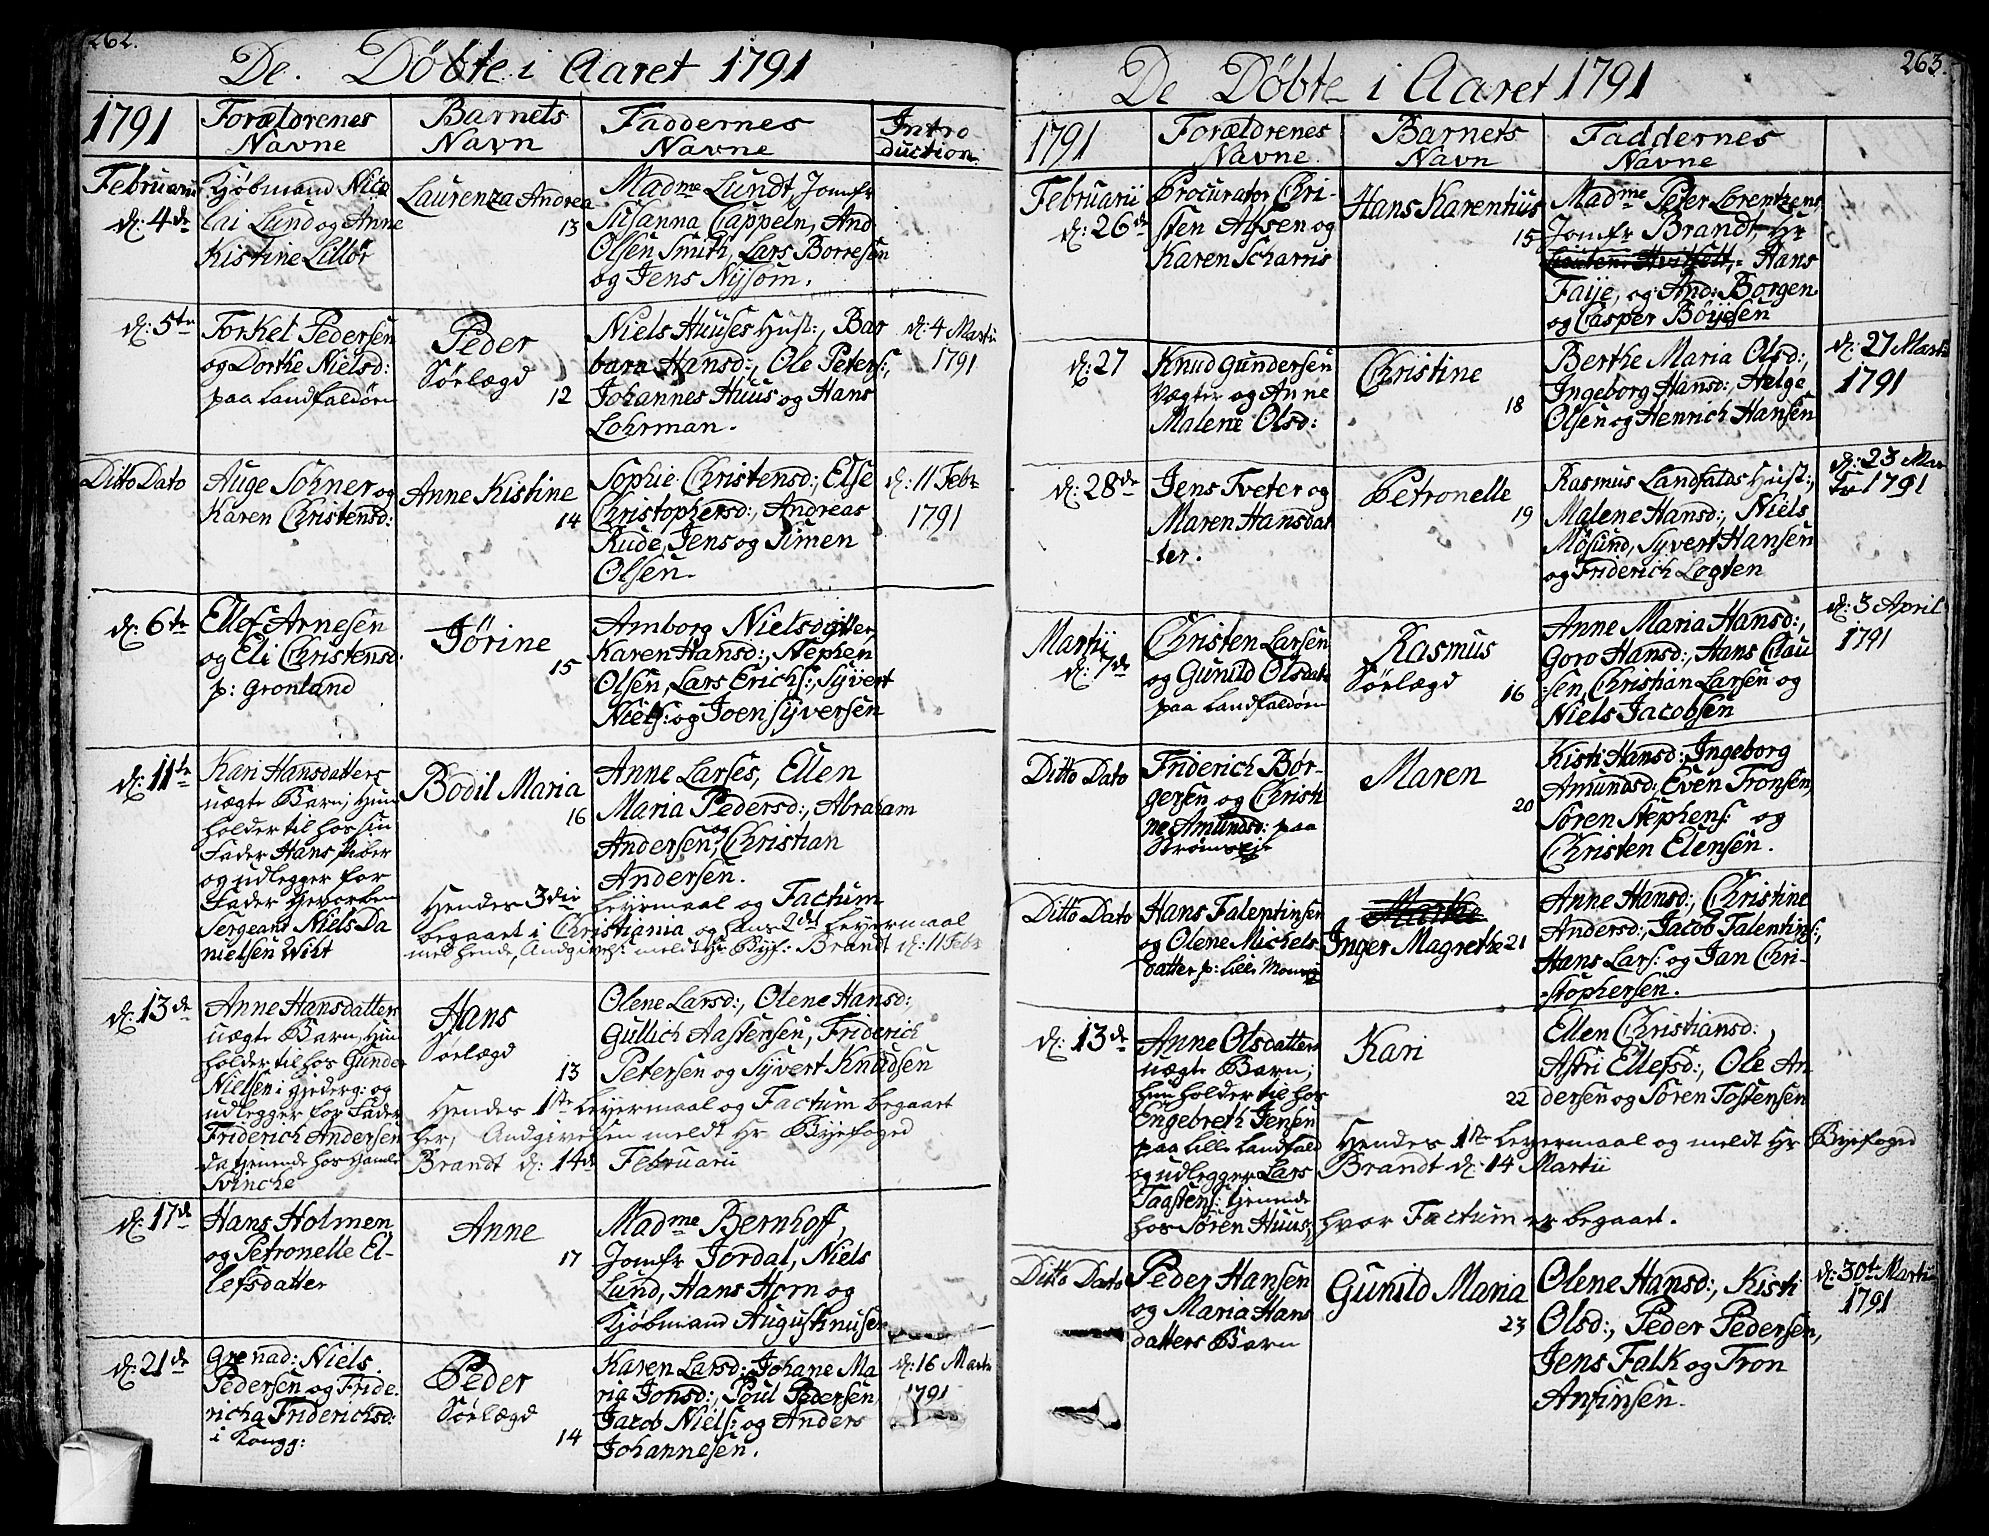 262.
De Döbte i Aaret 1791
1791
Forældrenes
Navne
Barnets
Navn
Faddernes
Navne
Intro
duction
Februarii
d: 4de
Kjöbmand Nico
lai Lund og Anne
Kistine Lillör
Laurenza Andrea
13
Madme Lundt, Jomfr
Susanna Cappeln, And
Olsen Smith, Lars Borresen
og Jens Nysom.
d: 5te
Torkel Pedersen
og Dorthe Nielsd:
paa Landfaldören
Peder
Sörlægd
12
Niels Huuses Hust:, Bar
bara Hansd:, Ole Peters:,
Johannes Huus og Hans
Lohrman.
d: 4 Martii
1791
Ditto Dato
Auge Sohner og
Karen Christensd:
Anne Kistine
14
Sophie Christensd:, Else
Christophersd:, Andreas
Rude, Jens og Simen
Olsen.
d: 11 Febr
1791
d: 6te
Ellef Arnesen
og Eli Christensd:
p: Gronland
Jörine
15
Amborg Nielsdatter,
Karen Hansd:, Stephen
Olsen, Lars Erichs:, Syvert
Niels: og Joen Syversen
d: 11te
Kari Hansdatters
uægte Barn; Hun
holder til hos sin
Fader Hans Piber
og udlegger for
Fader Hvervorben
Sergeant Niels Da
nielsen Wilt
Bodil Maria
16
Anne Larses, Ellen
Maria Pedersd:, Abraham
Andersen, og Christian
Andersen.
Hendes 3die Leyermaal og Factum
begaaet i Christiania og hans 2det Leyermaal
med hende, Andgivels: meldt Hr Byef: Brandt d: 11 Febr
d: 13de
Anne Hansdatters
uægte Barn, Hun
holder til hos Gunder
Nielsen i Hjederg: og
udlegger for Fader
Friderich Andersen
da tienende hos Hamle
Svinche
Hans
Sörlægd
13
Olene Larsd:, Olene Hansd:,
Gullich Aastensen, Friderich
Petersen og Syvert Knudsen
Hendes 1ste Leyermaal og Factum begaaet
her, Andgivelsen meldt Hr Byefoged
Brandt d: 14de Februarii
d: 17de
Hans Holmen
og Petronelle El-
lefsdatter
Anne
17
Madme Bernhoff,
Jomfr Jordal, Niels
Lund, Hans Horn og
Kjöbmand Augustinusen
d: 21de
Grenad: Niels
Pedersen og Fride
richa Friderichsd:
i Kongg:
Peder
Sörlægd
14
Karen Larsd:, Johane Ma
ria Johsd:, Poul Pedersen
Jacob Niels: og Anders
Johannesen.
d: 16 Martii
1791
263.
De Döbte i Aaret 1791
1791
Forældrenes
Navne
Barnets
Navn
Faddernes
Navne
Februarii
d: 26de
Procurator Chri-
sten Aysen og
Karen Scharris
Hans Karentius
15
Madme Peter Lorentzens
Jomfr Brandt, Hr
Hans
Faije, og And: Borgen
og Casper Böyesen
d: 27
Knud Gundersen
Vægter og Anne
Malene Olsd:
Christine
18
Berthe Maria Olsd:,
Ingeborg Hansd:, Helge
Olsen og Henrich Hansen
d: 27 Martii
1791
d: 28de
Jens Tveter og
Maren Hansdat
ter.
Petronelle
19
Rasmus Landfalds Hust:,
Malene Hansd:, Niels
Mösund, Syvert Hansen
og Friderich Løgten
d: 23 Mar
tii 1791
Martii
d: 7de
Christen Larsen
og Gunild Olsdat:
paa Landfaldören
Rasmus
Sörlægd
16
Anne Maria Hansd:,
Goro Hansd:, Hans Clau
sen, Christian Larsen og
Niels Jacobsen
d: 3 April
1791
Ditto Dato
Friderich Bör-
gersen og Christi
ne Amundsd: paa
Strömsöje
Maren
20
Kisti Hansd: Ingeborg
Amundsd:, Even Tronsen,
Sören Stephens: og
Christen Elensen.
Ditto Dato
Hans Falentinsen
og Olene Michels
datter p: Lille
Inger Magrethe 21
Anne Hansd:, Christine
Andersd:, Jacob Falentins:,
Hans Lars: og Jan Chri-
stophersen.
d: 13de
Anne Olsdatters
uægte Barn;
hun holder til hos
Engebreth Jensen
paa Lille Landfald
og udlegger Lars
Taastens: tienende
hos Sören Huus,
Kari
22
Ellen Christiansd:
Astri Ellefsd:, Ole An
dersen og Sören Tostensen
Hendes 1ste Leyermaal og meldt Hr Byefoged
Brandt d: 14 Martii
hvor Factum er begaaet.
Ditto Dato
Peder Hansen
og Maria Hans
datters Barn
Gunild Maria
23
Olene Hansd:, Kisti
Olsd:, Peder Pedersen,
Jens Falk og Tron
Anfinsen.
d: 30te Martii
1791